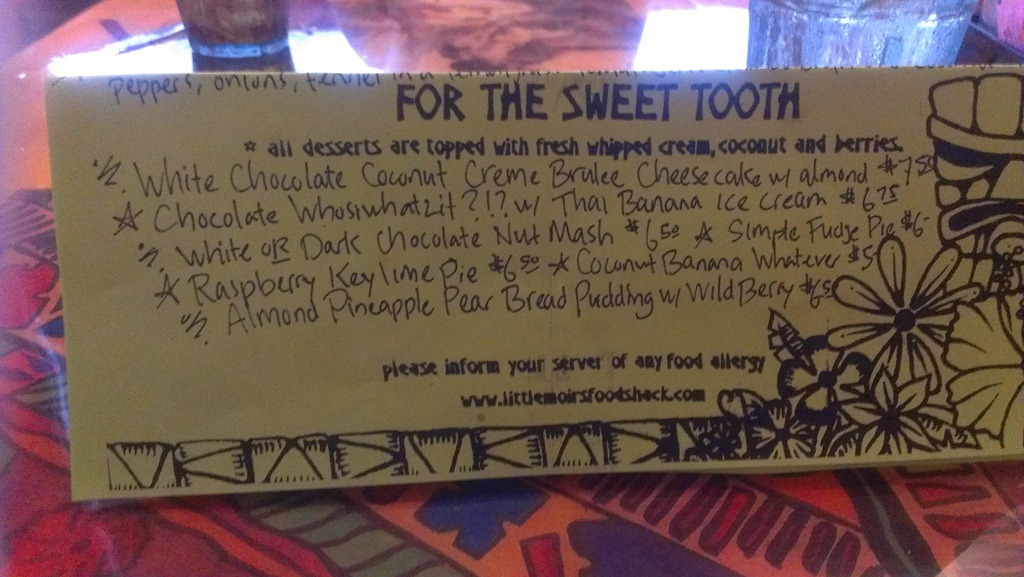 peppers, onions, fennel in a
FOR THE SWEET TOOTH
* all desserts are topped with fresh whipped cream, coconut and berries.
White Chocolate Coconut Creme Brulee Cheesecake w/ almond $7.50
☆ Chocolate Whosiwhatzit?!? w/ Thai Banana Ice cream $6.75
White OR Dark Chocolate Nut Mash $6.50 ☆ Simple Fudge Pie $6-
☆ Raspberry Key lime Pie $6.50 ☆ Coconut Banana Whatever $5
Almond Pineapple Pear Bread Pudding w/ Wild Berry $6.50
please inform your server of any food allergy
www.littlemoirsfoodshack.com